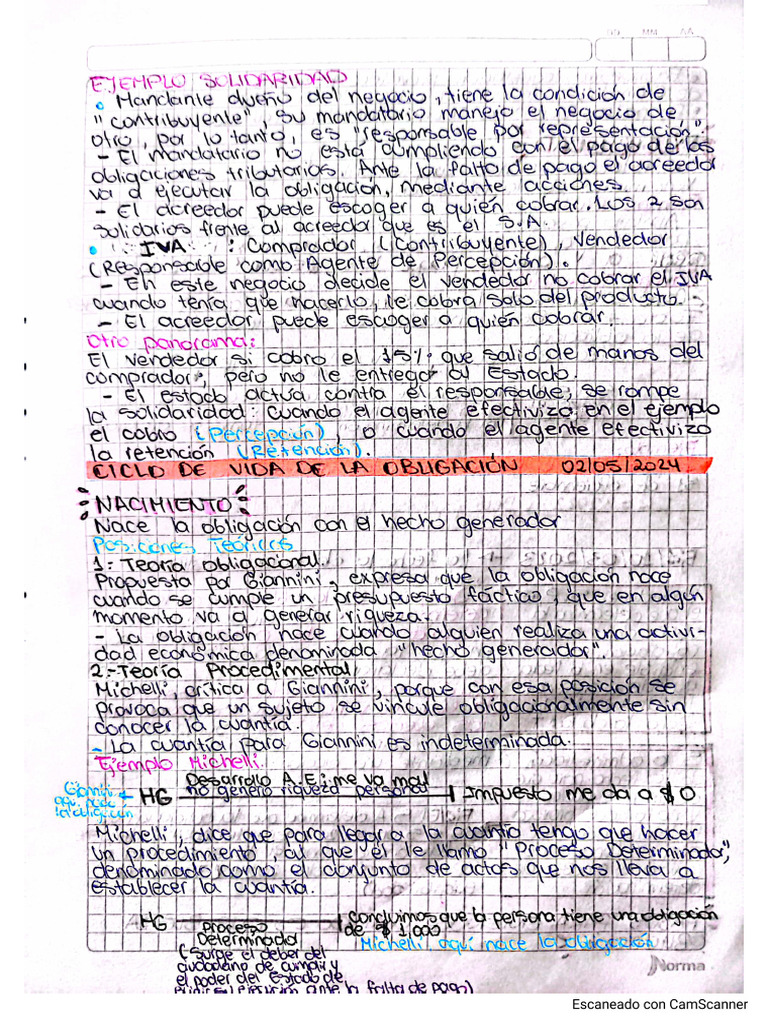 DD MM AA
EJEMPLO SOLIDARIDAD
• Mandante dueño del negocio, tiene la condición de
"contribuyente", su mandatario manejo el negocio de
otro, por lo tanto, es "responsable por representación".
- El mandatario no está cumpliendo con el pago de las
obligaciones tributarias. Ante la falta de pago el acreedor
va a ejecutar la obligación, mediante acciones.
- El acreedor puede escoger a quién cobrar. Los 2 son
solidarios frente al acreedor que es el S.A.
• IVA : Comprador (Contribuyente), Vendedor
(Responsable como Agente de Percepción).
- En este negocio decide el vendedor no cobrar el IVA
cuando tenía que hacerlo, le cobra solo del producto.
- El acreedor puede escoger a quién cobrar.
Otro panorama:
El vendedor si cobro el 15% que salió de manos del
comprador, pero no le entrego al Estado.
- El estado actúa contra el responsable; se rompe
la solidaridad: Cuando el agente efectivizo, en el ejemplo
el cobro (Percepción), o cuando el agente efectivizo
la retención (Retención).
CICLO DE VIDA DE LA OBLIGACIÓN 02/05/2024
NACIMIENTO
Nace la obligación con el hecho generador
Posiciones Teóricas
1.- Teoría obligacional.
Propuesta por Giannini, expresa que la obligación nace
cuando se cumple un presupuesto fáctico, que en algún
momento va a generar riqueza.
- La obligación nace cuando alguien realiza una activi-
dad económica denominada "hecho generador".
2.- Teoría Procedimental
Michelli, crítica a Giannini, porque con esa posición se
provoca que un sujeto se vincule obligacionalmente sin
conocer la cuantía.
- La cuantía para Giannini es indeterminada.
Ejemplo Michelli.
Giannini
aquí nace
la obligación
HG
Desarrollo A.E; me va mal
no genero riqueza personal
Impuesto me da a $0
Michelli, dice que para llegar a la cuantía tengo que hacer
un procedimiento, al que él le llamo "Proceso Determinador",
denominado como el conjunto de actos que nos lleva a
establecer la cuantía.
HG
Proceso
Determinado
(Surge el deber del
ciudadano de cumplir y
el poder del Estado de
ante la falta de pago)
Concluimos que la persona tiene una obligación
de $1.000
Michelli, aquí nace la obligación
Norma
Escaneado con CamScanner